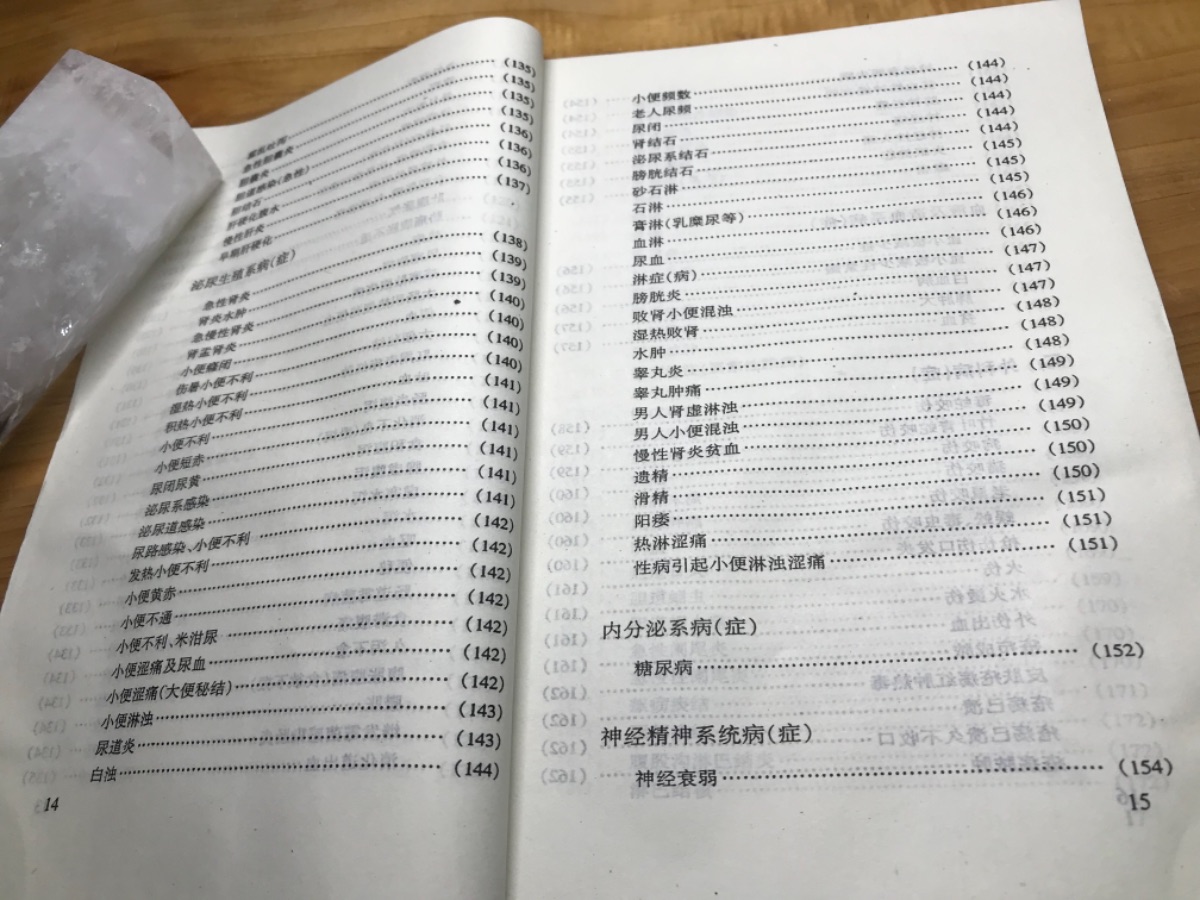 绞痛……(135)
急性胆囊炎……(135)
胆囊炎……(135)
胆道感染(急性)……(135)
胆结石……(136)
肝硬化腹水……(136)
慢性肝炎……(136)
早期肝硬化……(137)
泌尿生殖系病(症)
急性肾炎……(138)
肾炎水肿……(139)
急慢性肾炎……(139)
肾盂肾炎……(140)
小便癃闭……(140)
伤暑小便不利……(140)
湿热小便不利……(140)
积热小便不利……(141)
小便不利……(141)
小便短赤……(141)
尿闭尿黄……(141)
泌尿系感染……(141)
泌尿道感染……(141)
尿路感染、小便不利……(142)
发热小便不利……(142)
小便黄赤……(142)
小便不通……(142)
小便不利、米泔尿……(142)
小便涩痛及尿血……(142)
小便涩痛(大便秘结)……(142)
小便淋浊……(143)
尿道炎……(143)
白浊……(144)
14
小便频数……(144)
老人尿频……(144)
尿闭……(144)
肾结石……(144)
泌尿系结石……(144)
膀胱结石……(145)
砂石淋……(145)
石淋……(145)
膏淋(乳糜尿等)……(146)
血淋……(146)
尿血……(146)
淋症(病)……(147)
膀胱炎……(147)
败肾小便混浊……(147)
湿热败肾……(148)
水肿……(148)
睾丸炎……(148)
睾丸肿痛……(149)
男人肾虚淋浊……(149)
男人小便混浊……(149)
慢性肾炎贫血……(150)
遗精……(150)
滑精……(150)
阳痿……(151)
热淋涩痛……(151)
性病引起小便淋浊涩痛……(151)
内分泌系病(症)
糖尿病……(152)
神经精神系统病(症)
神经衰弱……(154)
15